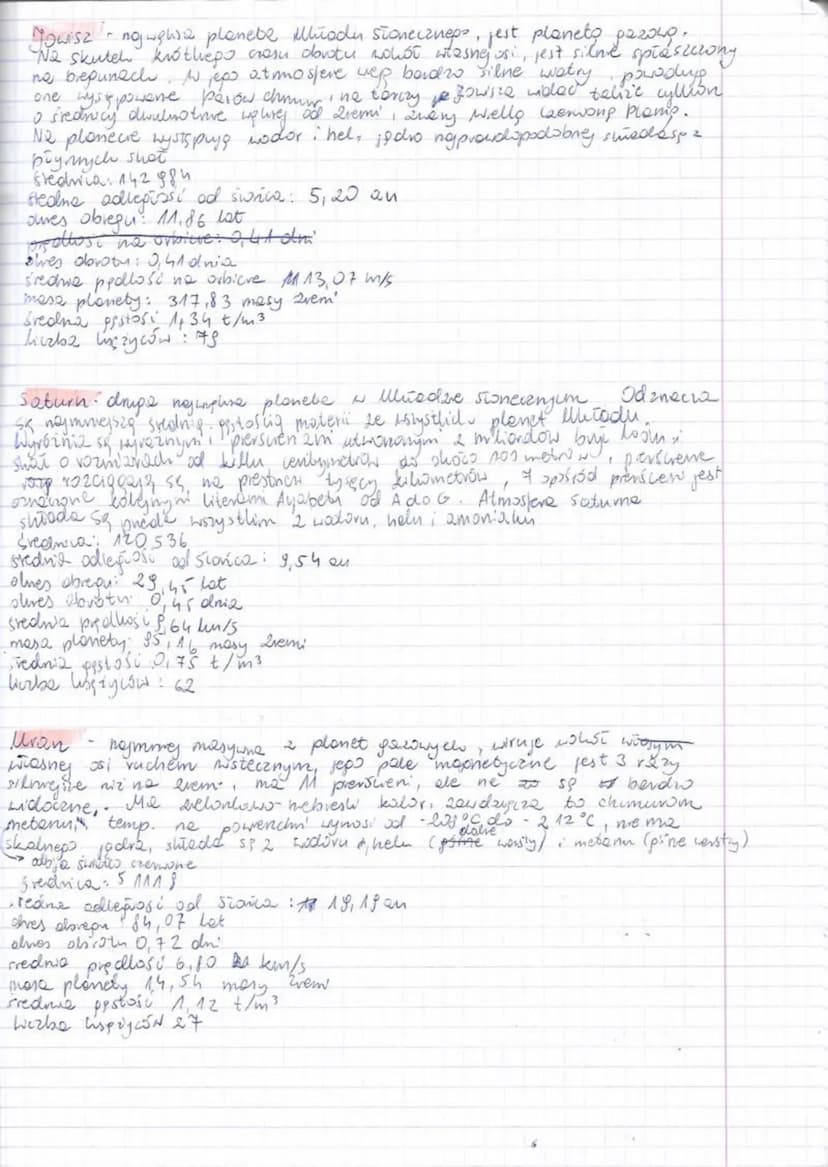 Jowisz - największa planeta Układu Słonecznego, jest planetą gazową.
Na skutek krótkiego czasu obrotu wokół własnej osi, jest silnie spłaszczony
na biegunach. W jego atmosferze wieją bardzo silne wiatry, powodują
one występowanie pasów chmur, na tarczy Jowisza widać także cyklon
o średnicy dwukrotnie większej od Ziemi, zwany wielką czerwoną plamą.
Na planecie występują wodór i hel, jądro najprawdopodobniej składa się z
płynnych skał
średnica: 142 984
średnia odległość od słońca: 5,20 au
okres obiegu: 11,86 lat
prędkość na orbicie: 0,41 dni
okres obrotu: 0,41 dnia
średnia prędkość na orbicie 13,07 m/s
masa planety: 317,83 masy Ziemi
średnia gęstość 1,34 t/m³
liczba księżyców: 79
Saturn - druga największa planeta w Układzie Słonecznym Odznacza
się najmniejszą średnią gęstością materii ze wszystkich planet Układu.
Wyróżnia się wyraźnymi pierścieniami utworzonymi z miliardów brył lodu i
skał o rozmiarach od kilku centymetrów do około 100 metrów, pierścienie
rozciągają się na przestrzeni tysięcy kilometrów, 7 spośród pierścieni jest
oznaczone kolejnymi literami Alfabetu od A do G. Atmosfera Saturna
składa się przede wszystkim z wodoru, helu i amoniaku
średnica: 120 536
średnia odległość od słońca: 9,54 au
okres obiegu: 29,45 lat
okres obrotu: 0,45 dnia
średnia prędkość 9,64 km/s
masa planety: 95,16 masy Ziemi
średnia gęstość 0,75 t/m³
liczba księżyców: 62
Uran - najmniej masywna z planet gazowych, wiruje wokół własnym
własnej osi ruchem wstecznym, jego pole magnetyczne jest 3 razy
silniejsze niż na Ziemi, ma 11 pierścieni, ale nie są bardzo
widoczne. Ma zielonkowo-niebieski kolor, zawdzięcza to chmurom
metanu, temp. na powierzchni wynosi od -208°C do -212°C, nie ma
skalnego jądra, składa się z wodoru i helu (górne dolne warsty) i metanu (górne warsty)
→ odbija światło czerwone
średnica: 51118
średnia odległość od słońca: 19,19 au
okres obiegu 84,07 lat
okres obrotu 0,72 dni
średnia prędkość 6,80 km/s
masa planety 14,54 masy Ziemi
średnia gęstość 1,12 t/m³
liczba księżyców 27